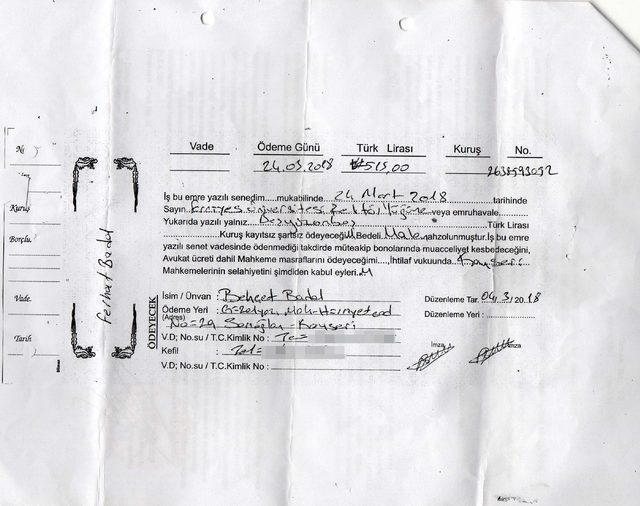 No
Kuruş
Borçlu.
Vade.
Tarih
Ferhat Badal
Vade Ödeme Günü Türk Lirası Kuruş No.
24.03.2018 515,00
İş bu emre yazılı senedim.....mukabilinde 24 Mart 2018 tarihinde
Sayın Erciyes üniversitesi Rektörlüğüne veya emruhavale.
Yukarıda yazılı yalnız Beşyüzonbeş Türk Lirası
Kuruş kayıtsız şartsız ödeyeceğiM. Bedeli Malen ahzolunmuştur. İş bu emre
yazılı senet vadesinde ödenmediği takdirde müteakip bonolarında muacceliyet kesbedeceğini,
Avukat ücreti dahil Mahkeme masraflarını ödeyeceğimi....,İhtilaf vukuunda Kayseri
Mahkemelerinin selahiyetini şimdiden kabul eyleri.M
ÖDEYECEK
İsim / Ünvan : Behçet Badal Düzenleme Tar. 04.3/2018
Ödeme Yeri : Mah. Hürriyet cad Düzenleme Yeri :
(Adres) No=29 Sarıoğlan - Kayseri
V.D; No.su / T.C.Kimlik No :
Kefil :
V.D; No.su / T.C.Kimlik No :
İmza İmza